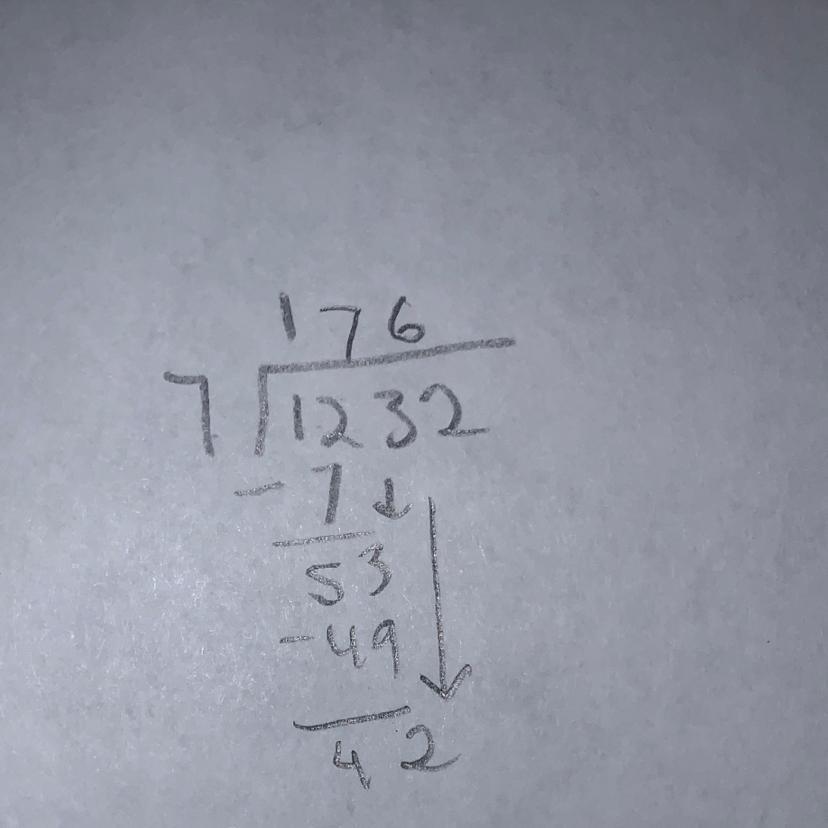 176
7 1232
- 7 ↓
53
- 49
42